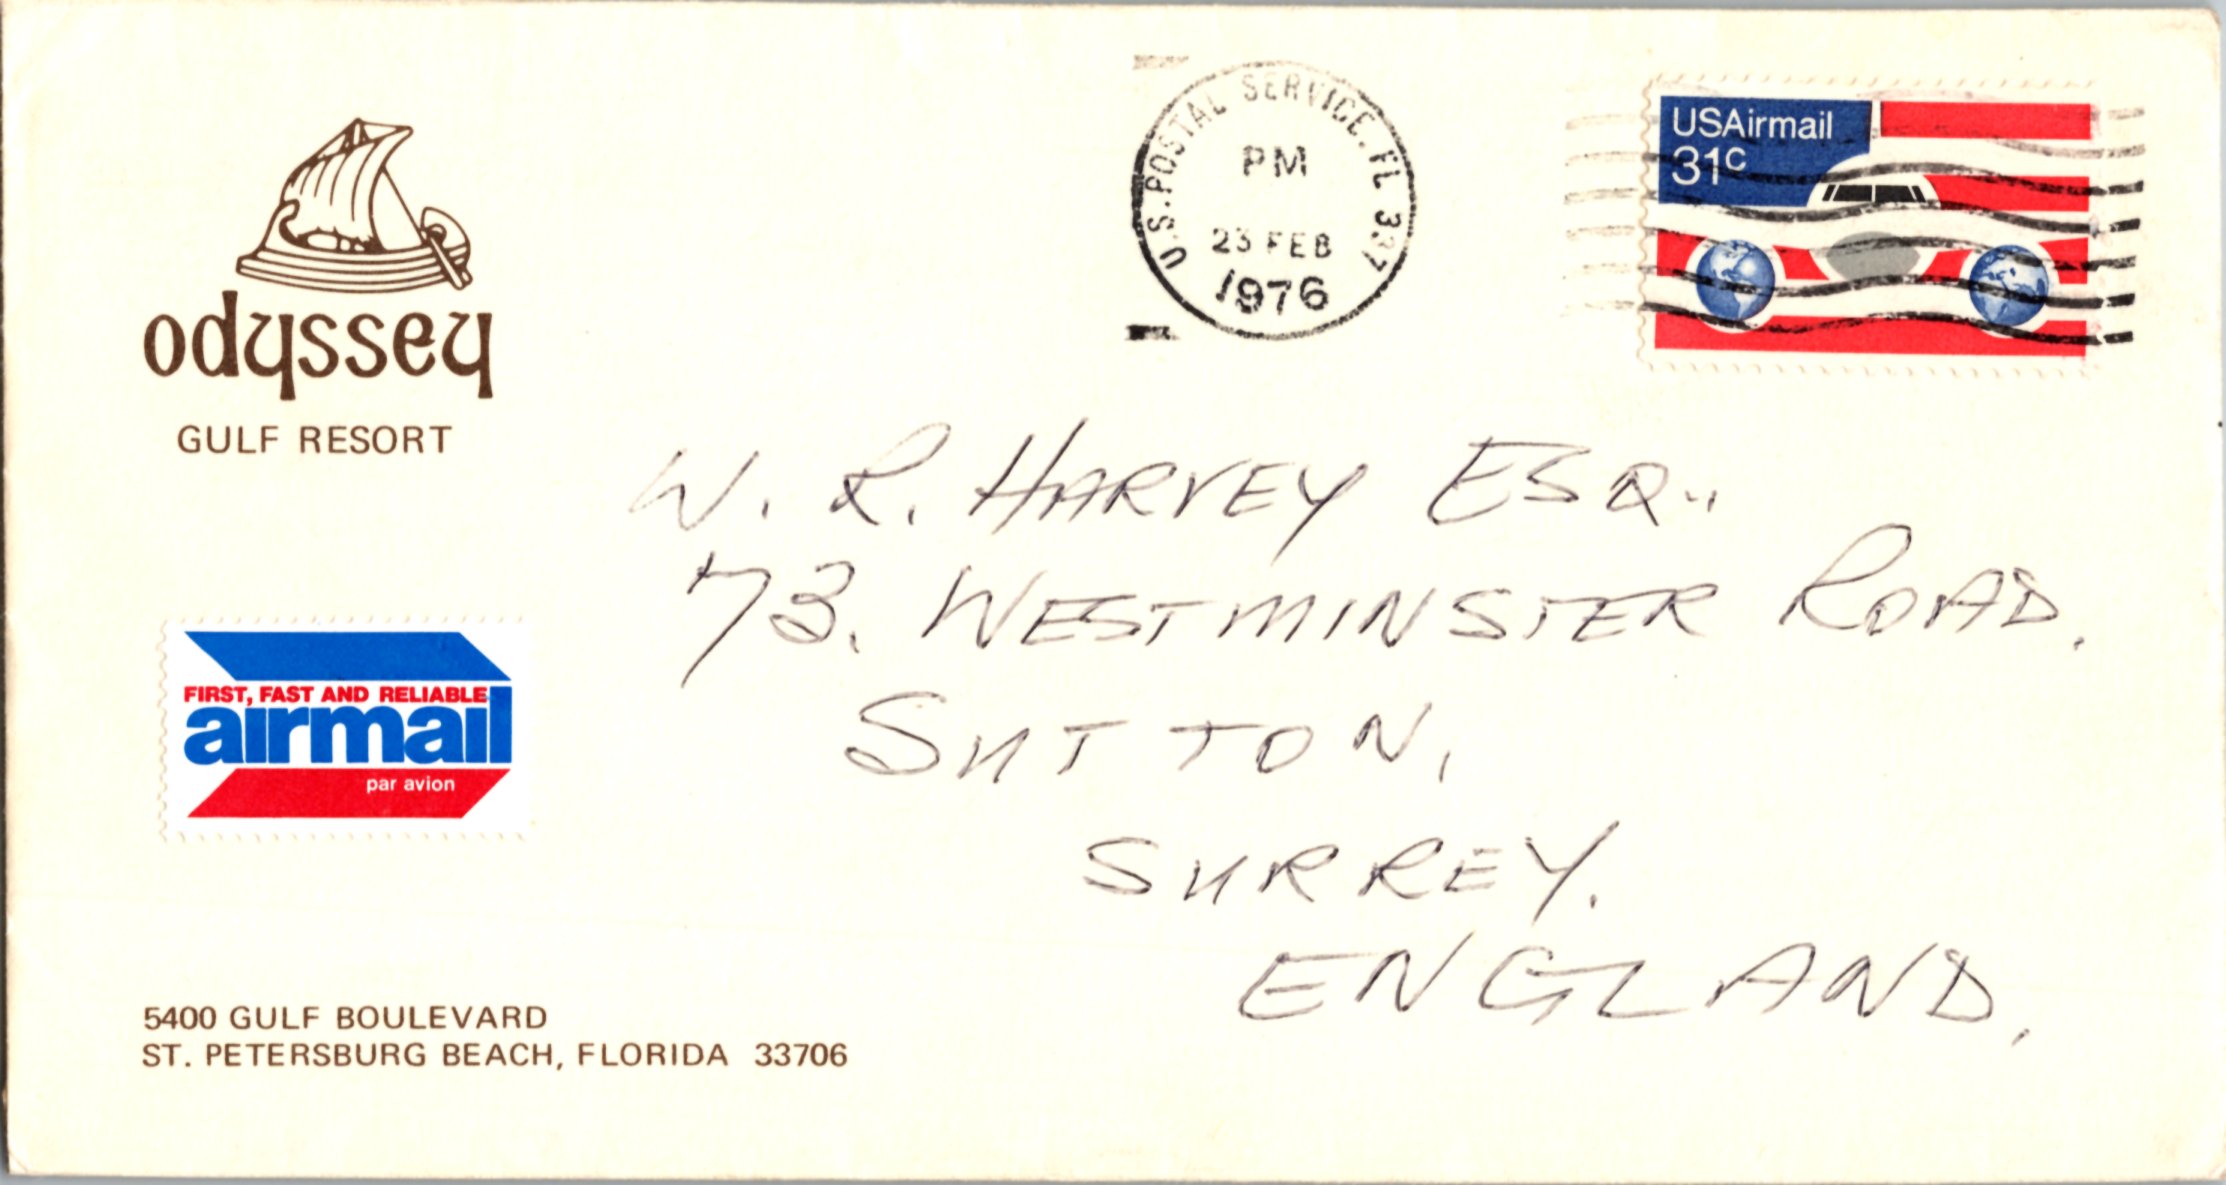 odyssey
GULF RESORT
U.S. POSTAL SERVICE. FL 337
PM
23 FEB
1976
USAirmail
31c
W. R. HARVEY ESQ.,
73. WESTMINSTER ROAD.
SUTTON,
SURREY.
ENGLAND,
FIRST, FAST AND RELIABLE
airmail
par avion
5400 GULF BOULEVARD
ST. PETERSBURG BEACH, FLORIDA 33706